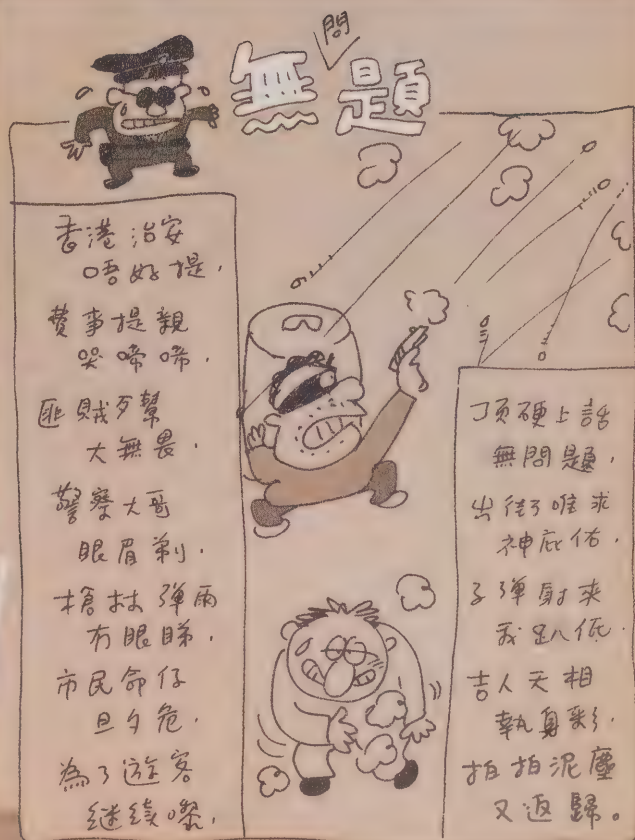 無問題
香港治安
唔好提，
費事提親
哭啼啼，
匪賊歹幫
大無畏，
警察大哥
眼眉剃，
槍林彈雨
冇眼睇，
市民命仔
旦夕危，
為了遊客
繼續嚟，
頂硬上話
無問題，
出街唯求
神庇佑，
子彈射來
我趴低，
吉人天相
執身彩，
拍拍泥塵
又返歸。